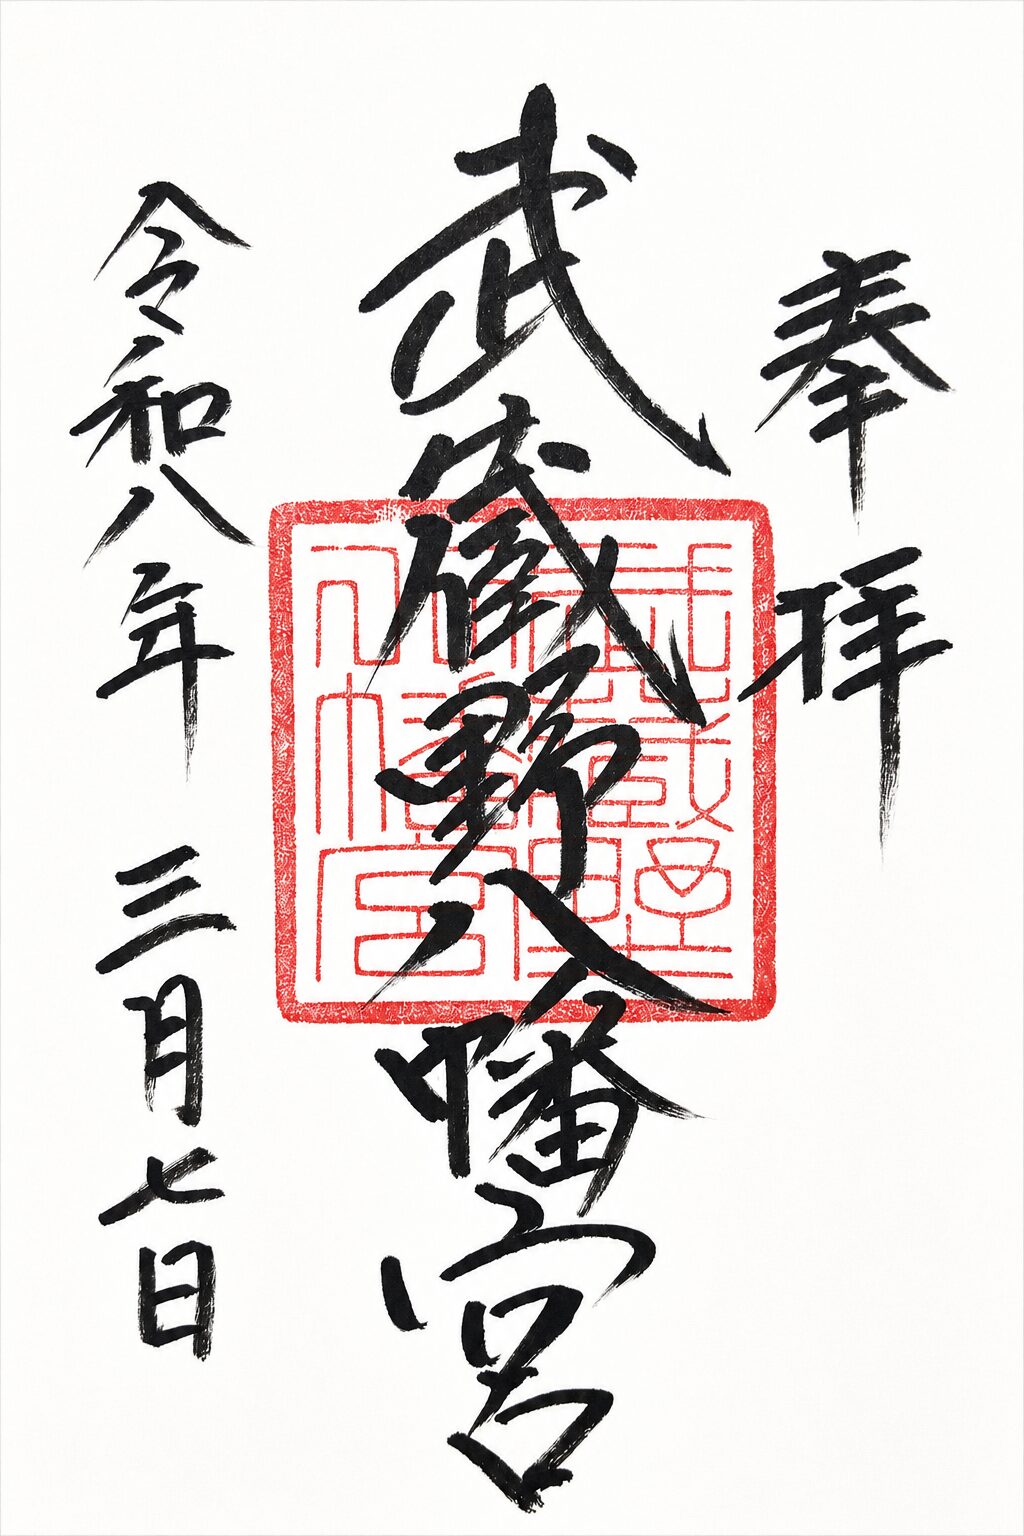 奉拝
武蔵野八幡宮
武蔵野
八幡宮
令和八年三月七日